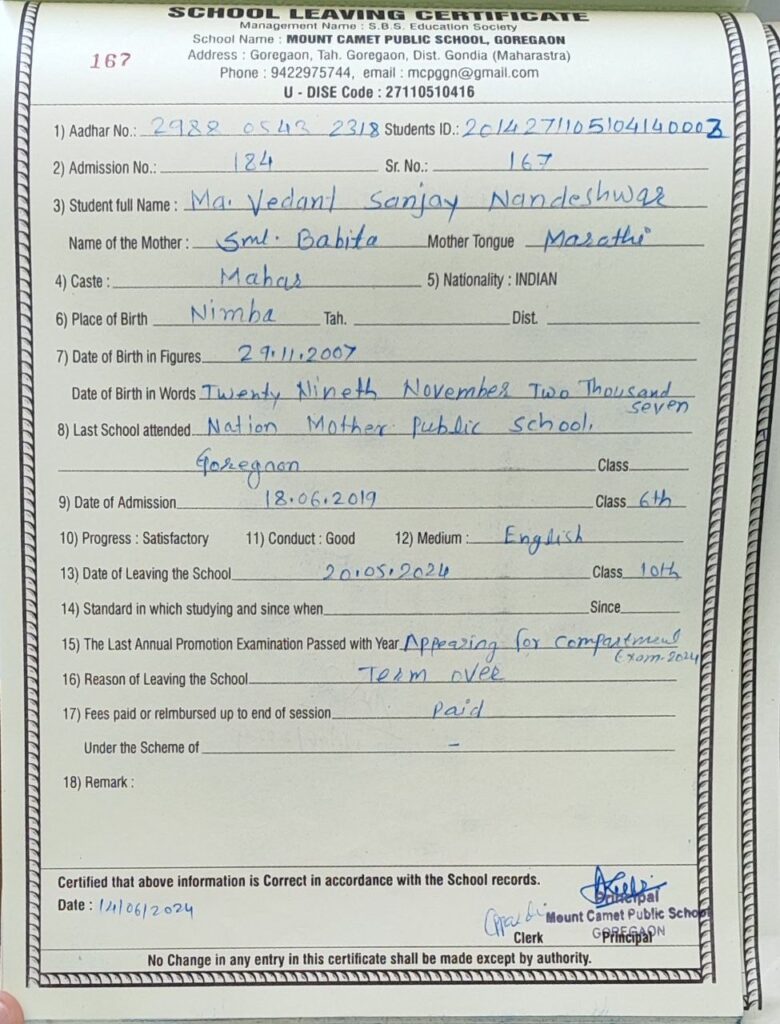 SCHOOL LEAVING CERTIFICATE
Management Name : S.B.S. Education Society
School Name : MOUNT CAMET PUBLIC SCHOOL, GOREGAON
167
Address : Goregaon, Tah. Goregaon, Dist. Gondia (Maharastra)
Phone : 9422975744, email : mcpggn@gmail.com
U - DISE Code : 27110510416
1) Aadhar No.: 2988 0543 2318 Students ID.: 2014271105104140003
2) Admission No.: 184 Sr. No.: 167
3) Student full Name : Ma. Vedant Sanjay Nandeshwar
Name of the Mother : Smt. Babita Mother Tongue Marathi
4) Caste : Mahar 5) Nationality : INDIAN
6) Place of Birth Nimba Tah. Dist.
7) Date of Birth in Figures 29.11.2007
Date of Birth in Words Twenty Nineth November Two Thousand
seven
8) Last School attended Nation Mother Public School,
Goregaon Class
9) Date of Admission 18.06.2019 Class 6th
10) Progress : Satisfactory 11) Conduct : Good 12) Medium : English
13) Date of Leaving the School 20.05.2024 Class 10th
14) Standard in which studying and since when Since
15) The Last Annual Promotion Examination Passed with Year Appearing for compartment
Exam-2024
16) Reason of Leaving the School Term over
17) Fees paid or reimbursed up to end of session Paid
Under the Scheme of -
18) Remark :
Certified that above information is Correct in accordance with the School records.
Date : 14/06/2024
Principal
Mount Camet Public School
GOREGAON
Clerk Principal
No Change in any entry in this certificate shall be made except by authority.